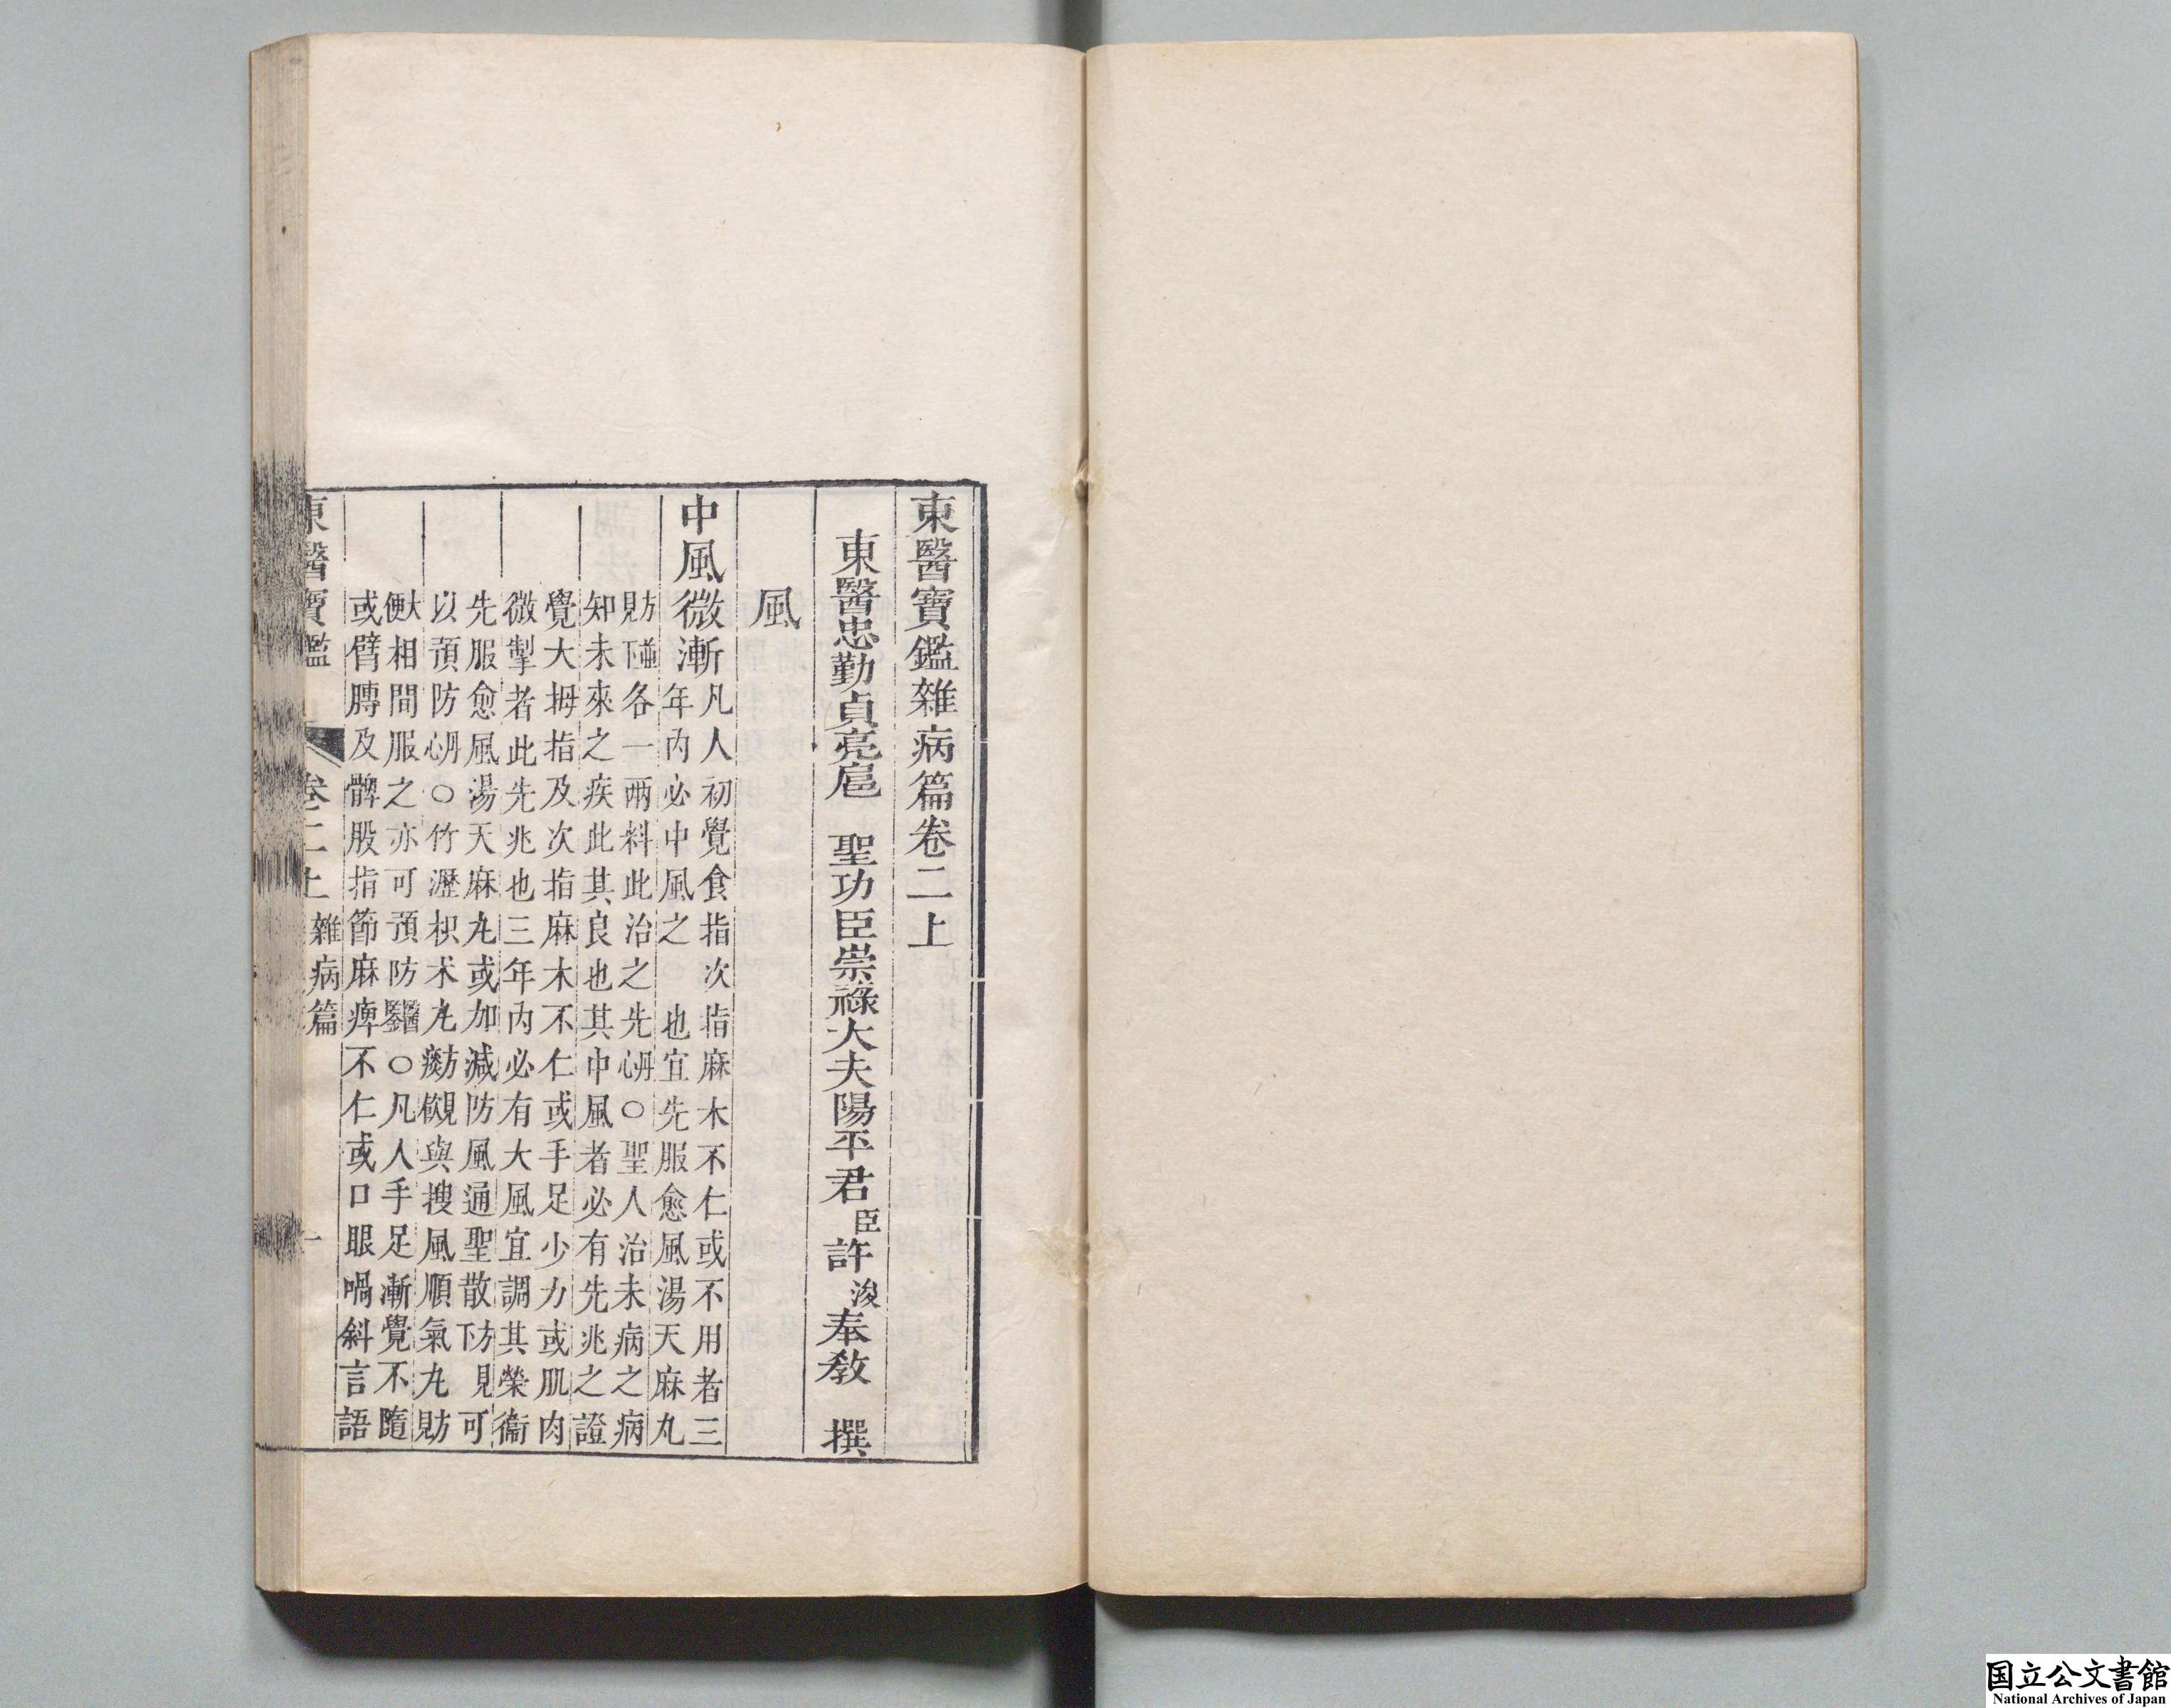 東醫寶鑑雜病篇卷二上
東醫忠勤貞亮扈　聖功臣崇祿大夫陽平君臣許浚奉教　撰
風
中風微漸
凡人初覺食指次指麻木不仁或不用者三
年内必中風之　也宜先服愈風湯天麻丸
方並見下各一兩料此治之先丹心○聖人治未病之病
知未來之疾此其良也其中風者必有先兆之證
覺大拇指及次指麻木不仁或手足少力或肌肉
微掣者此先兆也三年内必有大風宜調其榮衞
先服愈風湯天麻丸或加減防風通聖散方見下可
以預防丹心○竹瀝枳朮丸方見痰飮與搜風順氣丸方見
大便相間服之亦可預防醫鑑○凡人手足漸覺不隨
或臂膊及髀股指節麻痺不仁或口眼喎斜言語
東醫寶鑑　卷二上　雜病篇　一
国立公文書館
National Archives of Japan